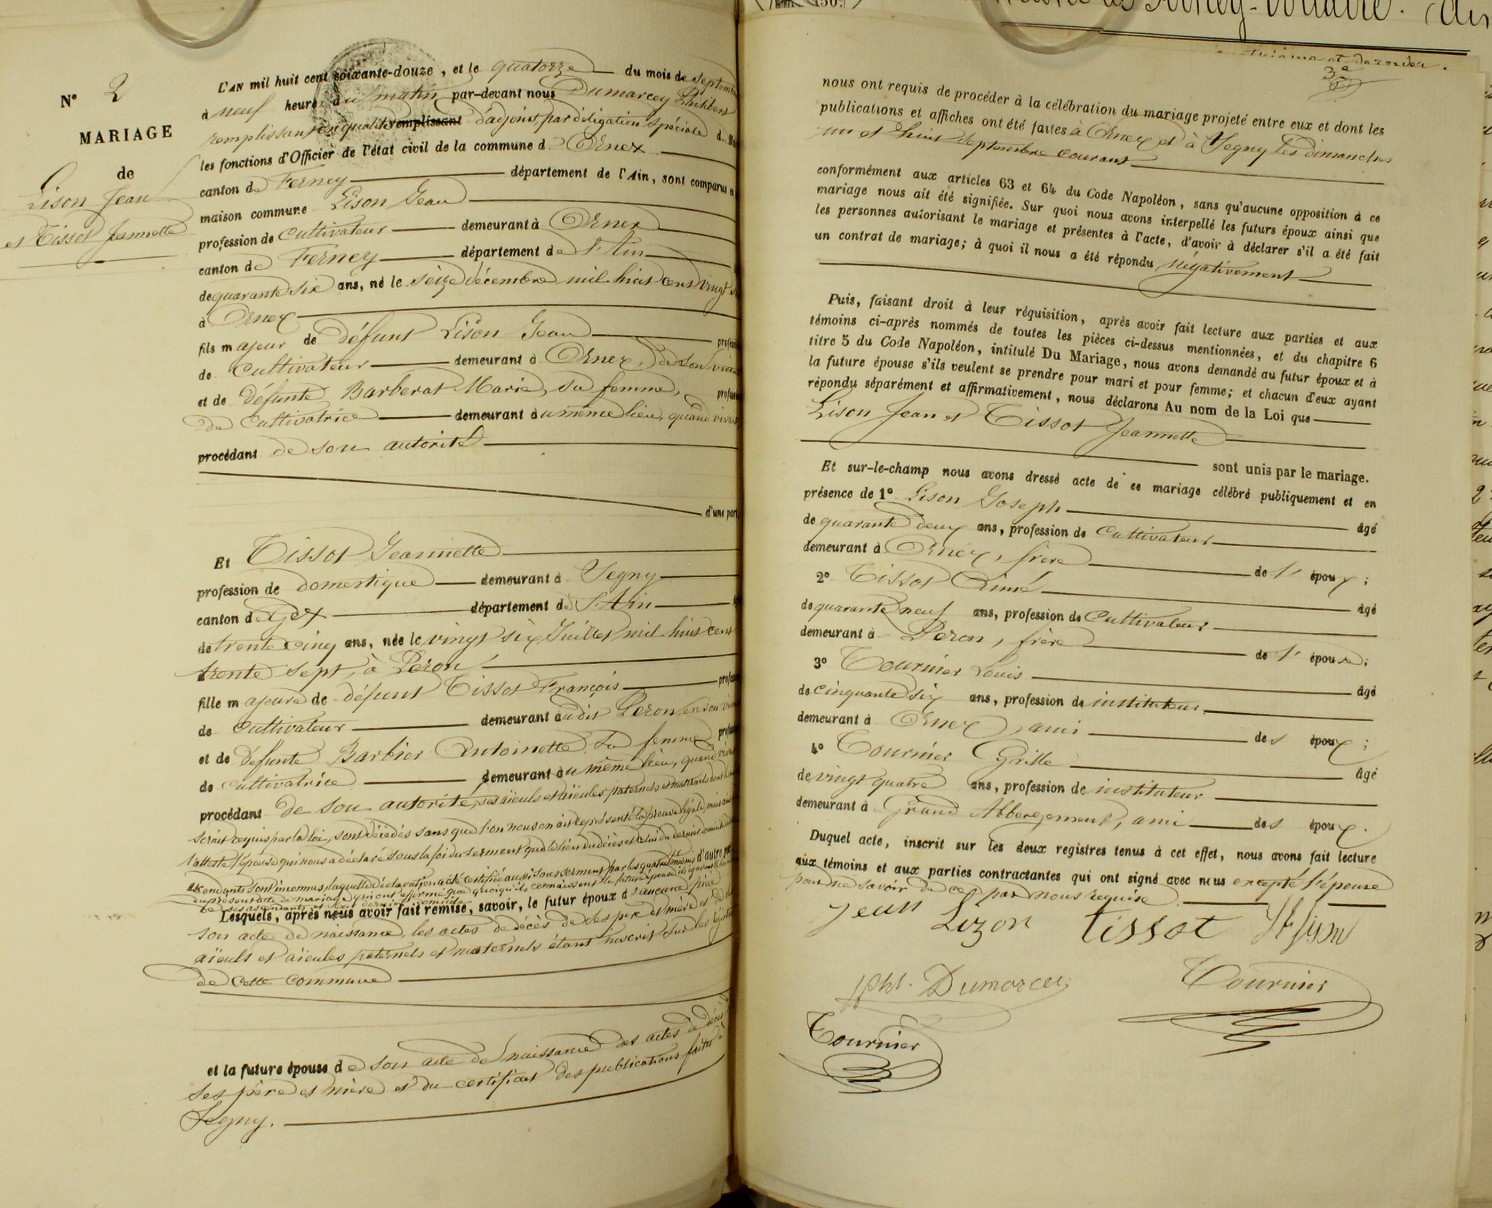 N° 2
MARIAGE
de
Lison Jean
et Tissot Jeannette
L'AN mil huit cent soixante-douze, et le quatorze du mois de septembre
à neuf heures du matin par-devant nous Dumarcey Philibert
remplissant en qualité remplissant d'adjoint par délégation spéciale d
les fonctions d'Officier de l'état civil de la commune d Ornex
canton de Ferney département de l'Ain, sont comparus en
maison commune Lison Jean
profession de cultivateur demeurant à Ornex
canton de Ferney département de l'Ain
de quarante six ans, né le seize décembre mil huit cent vingt
à Ornex
fils majeur de défunt Lison Jean
de Cultivateur demeurant à Ornex, de son vivant
et de défunte Barberat Marie, sa femme,
de Cultivatrice demeurant au même lieu, quand vivait
procédant de son autorité
d'une part
Et Tissot Jeannette
profession de domestique demeurant à Segny
canton de Gex département de l'Ain
de trente cinq ans, née le vingt six Juillet mil huit cent
trente sept, à Péron
fille majeure de défunt Tissot François
de Cultivateur demeurant audit Péron en son vivant
et de défunte Barbier Antoinette sa femme
de cultivatrice demeurant au même lieu, quand
procédant de son autorité, ses aïeuls et aïeules paternels et maternels dont
serait requis par la loi, sont décédés sans que l'on nous en ait représenté la preuve légale, mais
l'épouse qui nous a déclaré sous la foi du serment que le lieu du décès et celui du dernier
ascendants sont inconnus, laquelle déclaration a été certifiée aussi sous serment par les quatre témoins d'autre part
du présent acte de mariage, qui ont affirmé que quoiqu'ils connaissent la future épouse, ils ignorent
Lesquels, après nous avoir fait remise, savoir, le futur époux d
son acte de naissance, les actes de décès de ses père et mère et
aïeuls et aïeules paternels et maternels étant inscrits sur les registres
de cette commune
et la future épouse de son acte de naissance des actes de décès
ses père et mère et du certificat des publications faites à
Segny.
3e
nous ont requis de procéder à la célébration du mariage projeté entre eux et dont les
publications et affiches ont été faites à Ornex et à Segny les dimanches
un et huit septembre courant
conformément aux articles 63 et 64 du Code Napoléon, sans qu'aucune opposition à ce
mariage nous ait été signifiée. Sur quoi nous avons interpellé les futurs époux ainsi que
les personnes autorisant le mariage et présentes à l'acte, d'avoir à déclarer s'il a été fait
un contrat de mariage; à quoi il nous a été répondu négativement
Puis, faisant droit à leur réquisition, après avoir fait lecture aux parties et aux
témoins ci-après nommés de toutes les pièces ci-dessus mentionnées, et du chapitre 6
titre 5 du Code Napoléon, intitulé Du Mariage, nous avons demandé au futur époux et à
la future épouse s'ils veulent se prendre pour mari et pour femme; et chacun d'eux ayant
répondu séparément et affirmativement, nous déclarons Au nom de la Loi que
Lison Jean et Tissot Jeannette
sont unis par le mariage.
Et sur-le-champ nous avons dressé acte de ce mariage célébré publiquement et en
présence de 1° Lison Joseph âgé
de quarante deux ans, profession de Cultivateur
demeurant à Ornex, frère de l'époux;
2° Tissot Aimé âgé
de quarante neuf ans, profession de Cultivateur
demeurant à Péron, frère de l'épouse;
3° Tournier Louis âgé
de cinquante six ans, profession de instituteur
demeurant à Ornex, ami des époux;
4° Tournier Cyrille âgé
de vingt quatre ans, profession de instituteur
demeurant à Grand Abbergement, ami des époux.
Duquel acte, inscrit sur les deux registres tenus à cet effet, nous avons fait lecture
aux témoins et aux parties contractantes qui ont signé avec nous excepté l'épouse
pour ne savoir de ce par nous requise.
Jean Lizon tissot
Phl. Dumarcey Tournier
Tournier